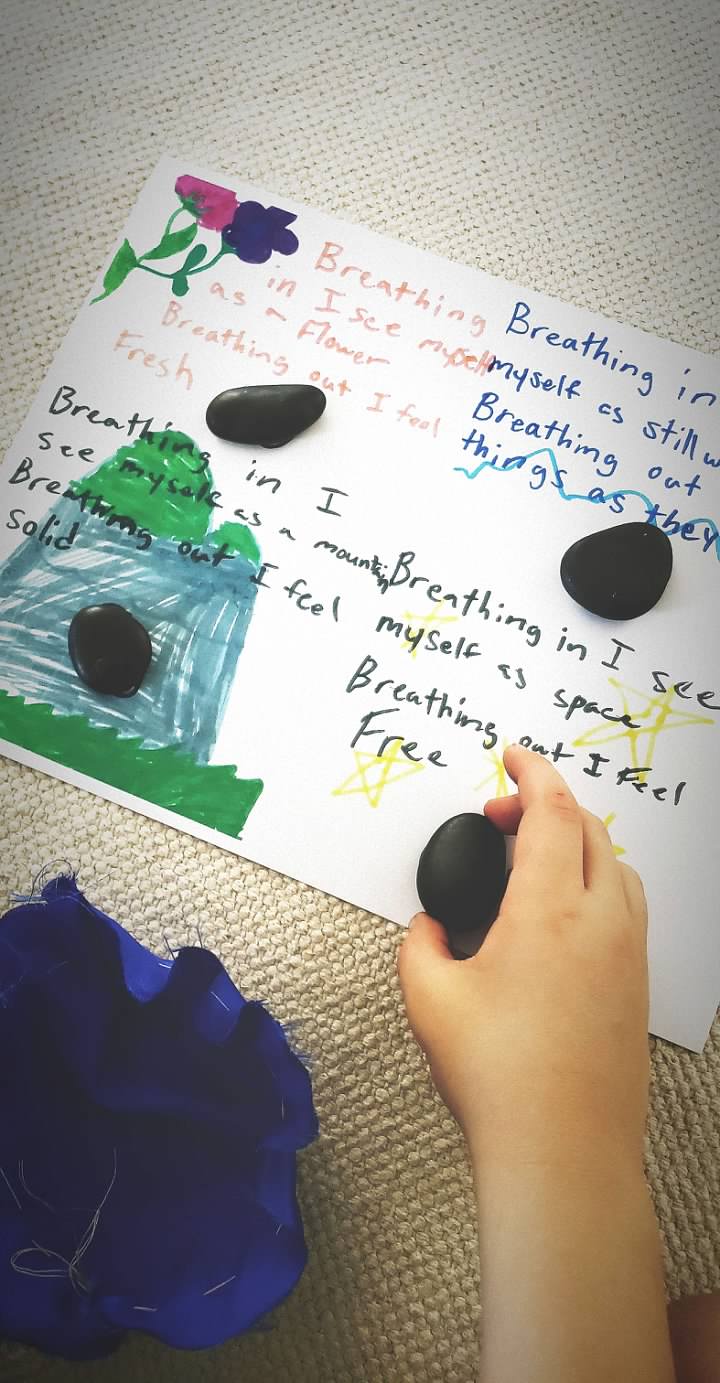 Breathing
in I see myself
as a Flower
Breathing out I feel
Fresh
Breathing in
myself as still
Breathing out
things as they
Breathing in I
see myself as a mountain
Breathing out I feel
solid
Breathing in I see
myself as space
Breathing out I Feel
Free